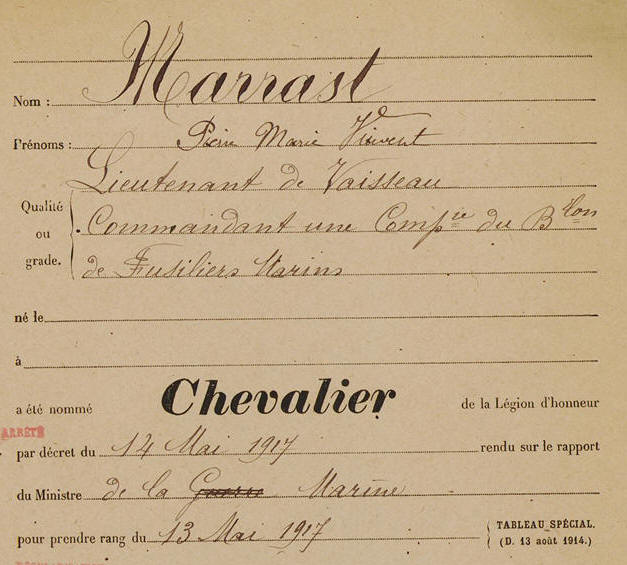 Nom : Marrast
Prénoms : Pierre Marie Vincent
Lieutenant de Vaisseau
Qualité ou grade. Commandant une Comp^nie du B^lon
de Fusiliers Marins
né le
à
a été nommé Chevalier de la Légion d'honneur
ARRÊTÉ
par décret du 14 Mai 1917 rendu sur le rapport
du Ministre de la ~~Guerre~~ Marine
pour prendre rang du 13 Mai 1917 TABLEAU SPÉCIAL.
(D. 13 août 1914.)